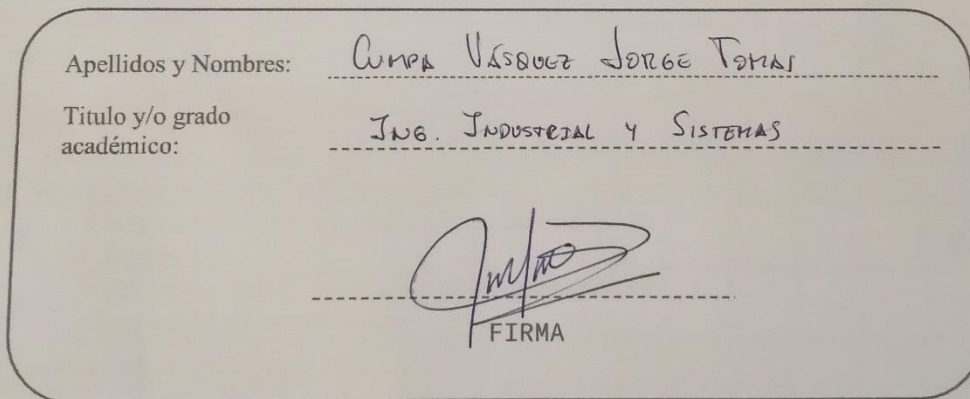 Apellidos y Nombres: CUMPA VÁSQUEZ JORGE TOMAS
Titulo y/o grado
académico: ING. INDUSTRIAL Y SISTEMAS
FIRMA